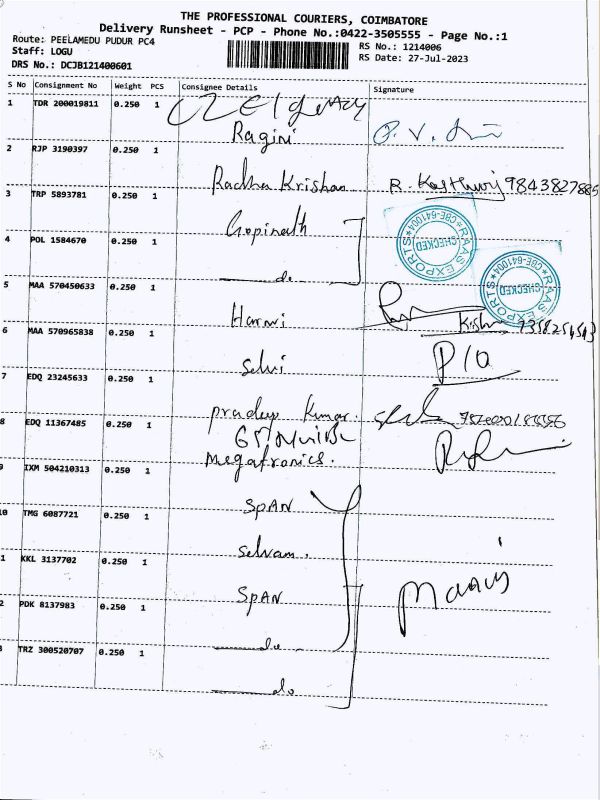 THE PROFESSIONAL COURIERS, COIMBATORE
Delivery Runsheet - PCP - Phone No.:0422-3505555 - Page No.:1
Route: PEELAMEDU PUDUR PC4
RS No.: 1214006
Staff: LOGU
RS Date: 27-Jul-2023
DRS No.: DCJB121400601
S No Consignment No Weight PCS Consignee Details Signature
1 TDR 200019811 0.250 1
Ragini
2 RJP 3190397 0.250 1
Radha Krishan R. Kasthuri 9843827885
3 TRP 5893781 0.250 1
Gopinath
RAAS EXPORTS CBE-641004 CHECKED
4 POL 1584670 0.250 1
do
RAAS EXPORTS CBE-641004 CHECKED
5 MAA 570450633 0.250 1
Harini
6 MAA 570965838 0.250 1
Selvi
7 EDQ 23245633 0.250 1
pradeep Kumar.
8 EDQ 11367485 0.250 1
Megatronics.
9 IXM 504210313 0.250 1
SPAN
10 TMG 6087721 0.250 1
Selvam.
1 KKL 3137702 0.250 1
SPAN
2 PDK 8137983 0.250 1
do
3 TRZ 300520707 0.250 1
do